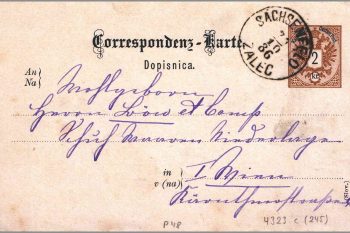 Correspondenz-Karte
Dopisnica.
SACHSENFELD
10
86
ŽALEC
2
KR
An
Na
Wohlgeboren
Herren Löw et Comp
Schuh Waaren Niederlage
in
v (na)
I Wien
Kärnthnerstrasse
(Slov.)
P 48
4323 c (245)